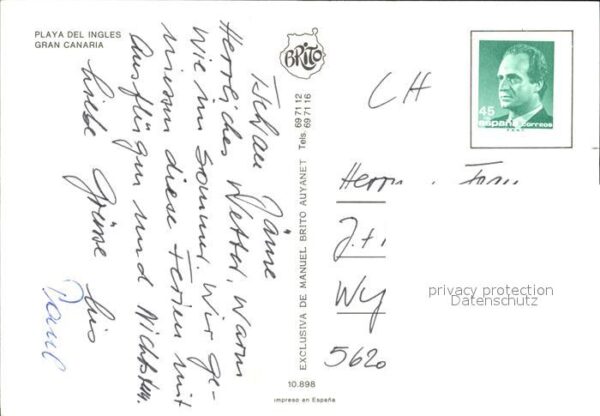 PLAYA DEL INGLES
GRAN CANARIA
BRITO
Tschau Jänne
Herrliches Wetter. Warm
wie im Sommer. Wir ge-
niessen diese Ferien mit
Ausflügen und Nichtstun.
Liebe Grüsse
Paul
EXCLUSIVA DE MANUEL BRITO AUYANET
Tels. 69 71 12
69 71 16
10.898
Impreso en España
45
españa correos
CH
Herrn
Fam
J.
Wy
5620
privacy protection
Datenschutz